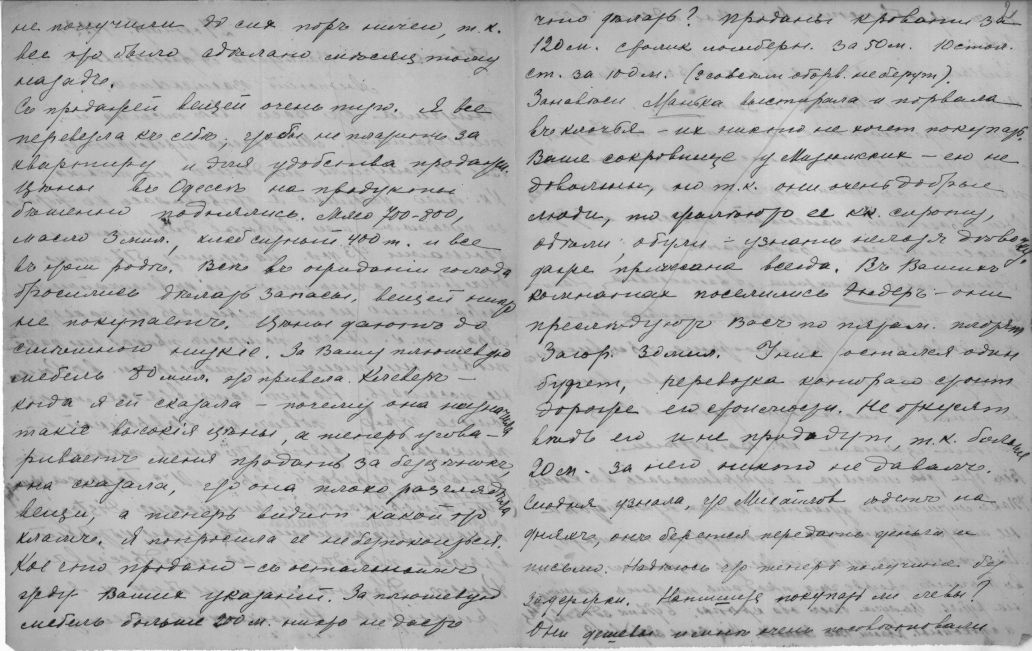 не получили до сих поръ ничего, т.к.
все это было сделано месяц тому
назадъ.
Съ продажей вещей очень туго. Я все
перевезла къ себѣ, чтобы не платить за
квартиру и для удобства продажи.
Цѣны въ Одессѣ на продукты
бешенно поднялись. Мясо 700-800,
масло 3 мил., хлеб сырный 400 т. и все
въ этом родѣ. Всѣ въ ожидании голода
бросились дѣлать запасы, вещей никто
не покупаетъ. Цѣны даютъ до
смѣшного низкіе. За Вашу плюшевую
мебель 80 мил. это привела. Клеверъ –
когда я ей сказала – почему она назначила
такіе высокія цѣны, а теперь угова-
риваетъ меня продать за безцѣнокъ,
она сказала, что она плохо разглядѣла
вещи, а теперь видит какой это
хламъ. Я попросила ее не безпокоиться.
Кое что продано – съ остальнымъ
жду Ваших указаний. За плюшевую
мебель больше 200 м. никто не дает
что делать? Проданы кровати за
120 м. столик ломберн. за 50 м. 10 стол.
ст. за 100 м. (2 совсем оборв. не берут).
Занавѣси Манька выстирала и порвала
въ клочья – их никто не хочет покупать.
Ваше сокровище у – ею не
довольны, но т.к. они очень добрые
люди, то ее къ
одѣли, обули – узнать нельзя девочку,
даже причесана всегда. Въ Вашихъ
комнатах поселились – они
преслѣдуют Васъ по пятам.
Загор. 30 мил. У них остался один
буфет, перевозка которого стоит
дороже его стоимости. Не отпускают
вѣдь его и не продадут, т.к. больше
20 м. за него никто не давалъ.
Сегодня узнала, что Михайлов едетъ на
дняхъ, онъ берется передать деньги и
письмо. Надеюсь что теперь получите без
задержки. Напишите покупать ли левы?
Они дешевы и мнѣ очень посовѣтовали